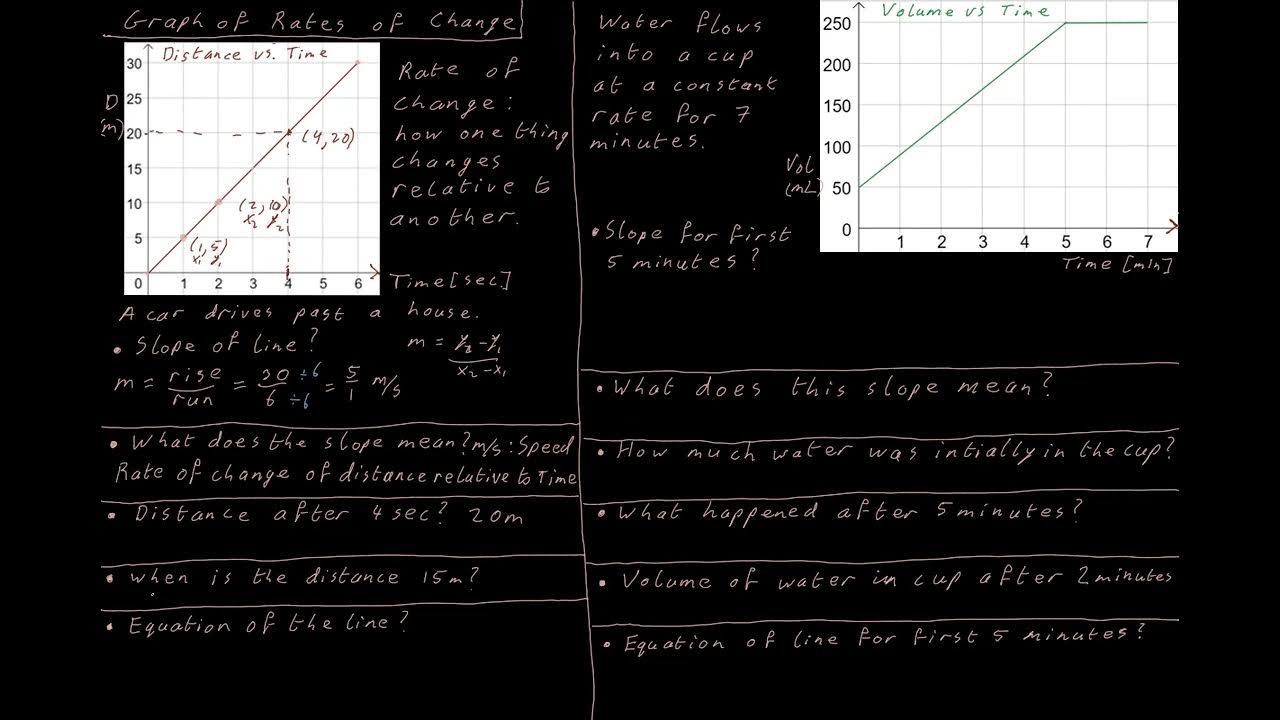 Graph of Rates of Change
Distance vs. Time
30
25
20
15
10
5
0
1 2 3 4 5 6
D
(m)
(4,20)
(2,10)
x₂ y₂
(1,5)
x₁ y₁
Time [sec]
Rate of
change:
how one thing
changes
relative to
another.
A car drives past a house.
• Slope of line?
m = y₂-y₁
x₂-x₁
m = rise = 30 ÷6 = 5 m/s
run 6 ÷6 1
• What does the slope mean? m/s: Speed
Rate of change of distance relative to Time
• Distance after 4 sec? 20m
• when is the distance 15m?
• Equation of the line?
Water flows
into a cup
at a constant
rate for 7
minutes.
Volume vs Time
250
200
150
100
50
0
1 2 3 4 5 6 7
Vol
(mL)
Time [min]
• Slope for first
5 minutes?
• What does this slope mean?
• How much water was intially in the cup?
• What happened after 5 minutes?
• Volume of water in cup after 2 minutes
• Equation of line for first 5 minutes?